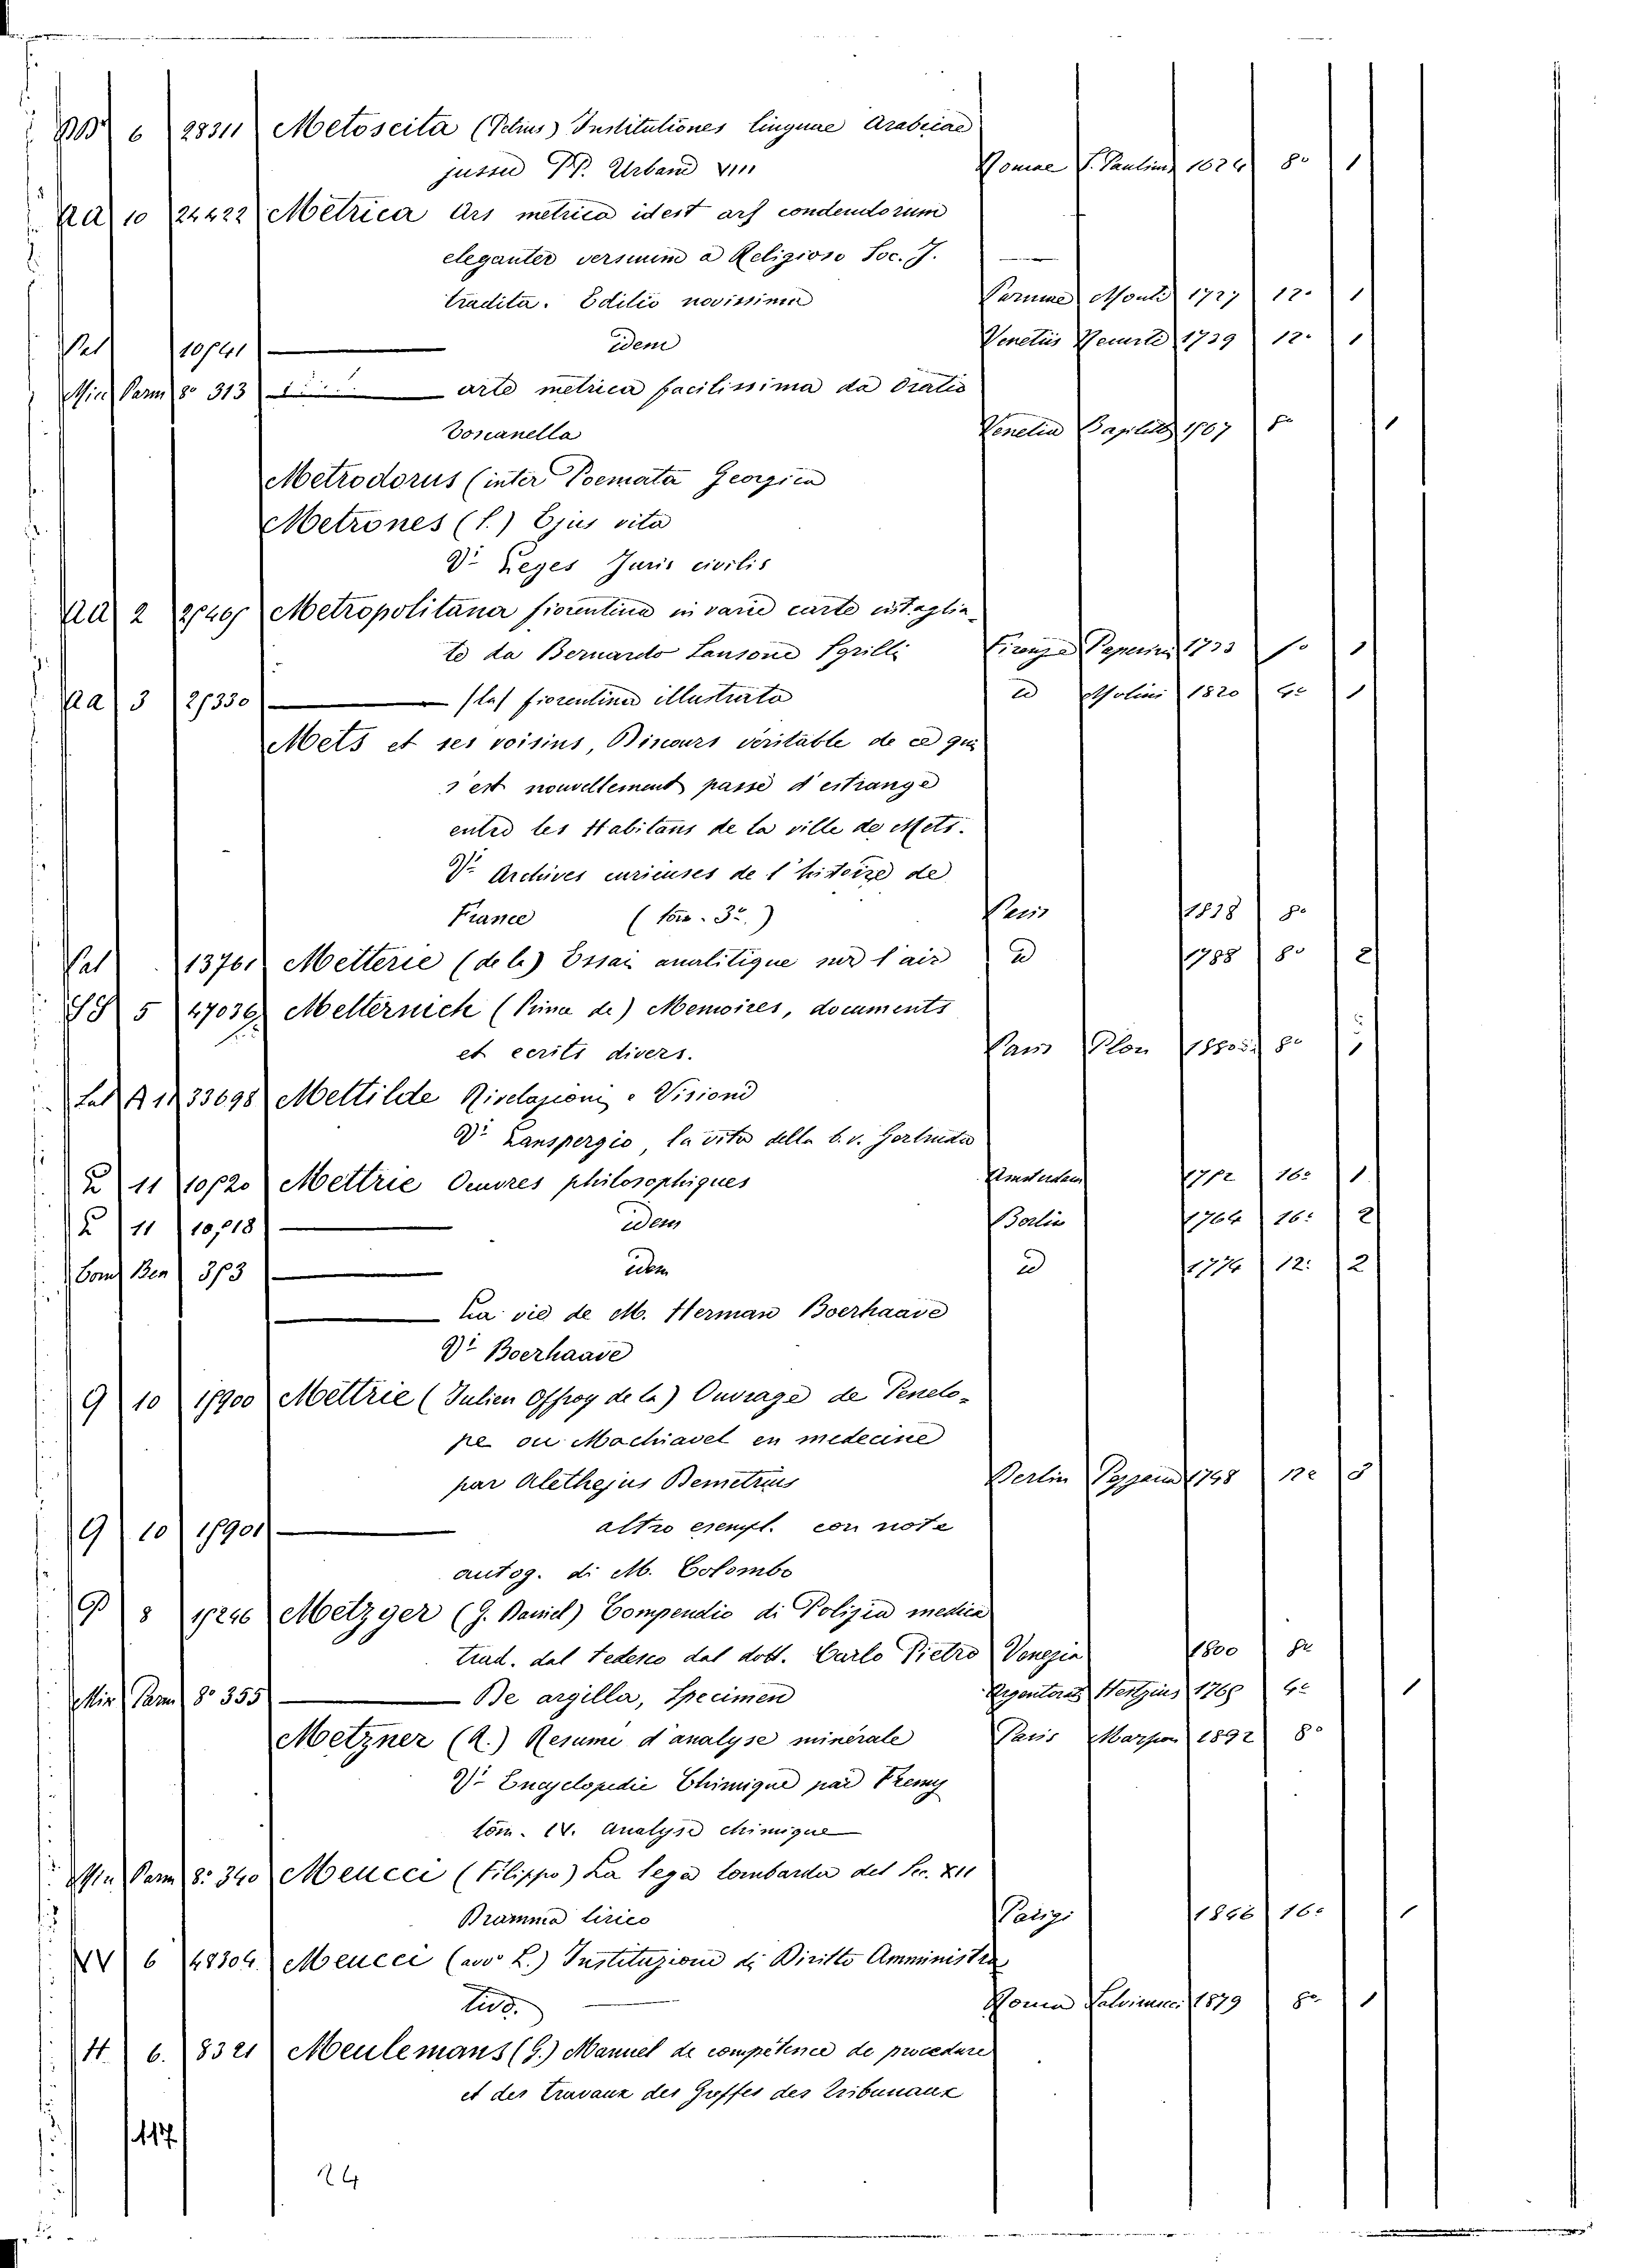 BB 6 28311 Metoscita (Petrus) Institutiones linguae Arabicae
jussu PP. Urbani VIII Romae S. Paulinus 1624 8° 1
Aa 10 24422 Metrica Ars metrica idest ars condendorum
eleganter versuum a Religioso Soc. J.
tradita. Editio novissima Parmae Monti 1727 12° 1
Pal 10541 idem Venetiis Recurti 1739 12° 1
Min Parm 8° 313 arte metrica facilissima da Oratio
Toscanella Venetia 1567 8° 1
Metrodorus (inter Poemata Georgica
Metrones (S.) Ejus vita
V. Leges Juris civilis
Aa 2 25405 Metropolitana fiorentina in varie carte intaglia-
te da Bernardo Sansone Sgrilli Firenze Paperini 1733 f° 1
Aa 3 25330 (la) fiorentina illustrata id Molini 1820 4° 1
Mets et ses voisins, Discours véritable de ce qui
s'est nouvellement passé d'estrange
entre les Habitans de la ville de Mets.
V. Archives curieuses de l'histoire de
France (tom. 3°.) Paris 1838 8°
Pal 13761 Metterie (de la) Essai analitique sur l'air id 1788 8° 2
SS 5 47036 Metternich (Prince de) Memoires, documents
et ecrits divers. Paris Plon 1880 8°
Lal A 11 33698 Mettilde Rivelazioni e Visioni
V. Lanspergio, la vita della b. v. Gertruda
E 11 10520 Mettrie Oeuvres philosophiques Amsterdam 1752 16° 1
E 11 10,518 idem Berlin 1764 16° 2
Com Ben 353 idem id 1774 12° 2
La vie de M. Herman Boerhaave
V. Boerhaave
9 10 15900 Mettrie (Julien Offroy de la) Ouvrage de Penelo-
pe ou Machiavel en medecine
par Alethejus Demetrius Berlin 1748 12° 3
9 10 15901 altro esempl. con note
autog. di M. Colombo
9 8 15246 Metzger (G. Daniel) Compendio di Polizia medica
trad. dal Tedesco dal dott. Carlo Pietro Venezia 1800 8°
Min Parm 8° 355 De argilla, Specimen Argentorat Hertzius 1765 4° 1
Metzner (R.) Resumé d'analyse minérale Paris Marpon 1892 8°
V. Encyclopedie Chimique par Fremy
tom. IV. Analyse chimique
Min Parm 8° 340 Meucci (Filippo) La lega lombarda del Sec. XII
Dramma lirico Parigi 1846 16° 1
VV 6 48304 Meucci (avv. L.) Instituzioni di Diritto Amministra
tivo. Roma Salviucci 1879 8° 1
H 6. 8321 Meulemans (G.) Manuel de compétence de procedure
et des travaux des Greffes des Tribunaux
117
24